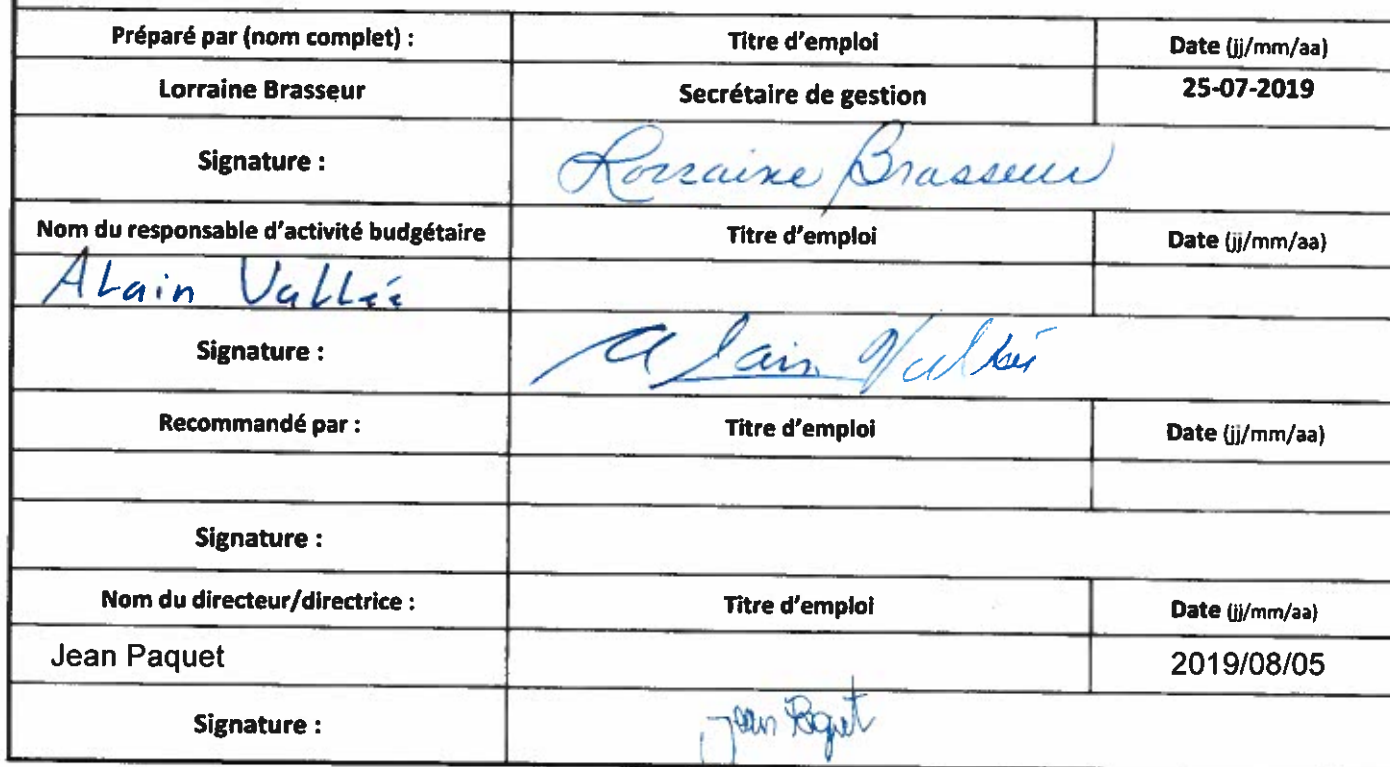 Préparé par (nom complet) : Titre d'emploi Date (jj/mm/aa)
Lorraine Brasseur Secrétaire de gestion 25-07-2019
Signature : Lorraine Brasseur
Nom du responsable d'activité budgétaire Titre d'emploi Date (jj/mm/aa)
Alain Vallée
Signature : Alain Vallée
Recommandé par : Titre d'emploi Date (jj/mm/aa)
Signature :
Nom du directeur/directrice : Titre d'emploi Date (jj/mm/aa)
Jean Paquet 2019/08/05
Signature : Jean Paquet